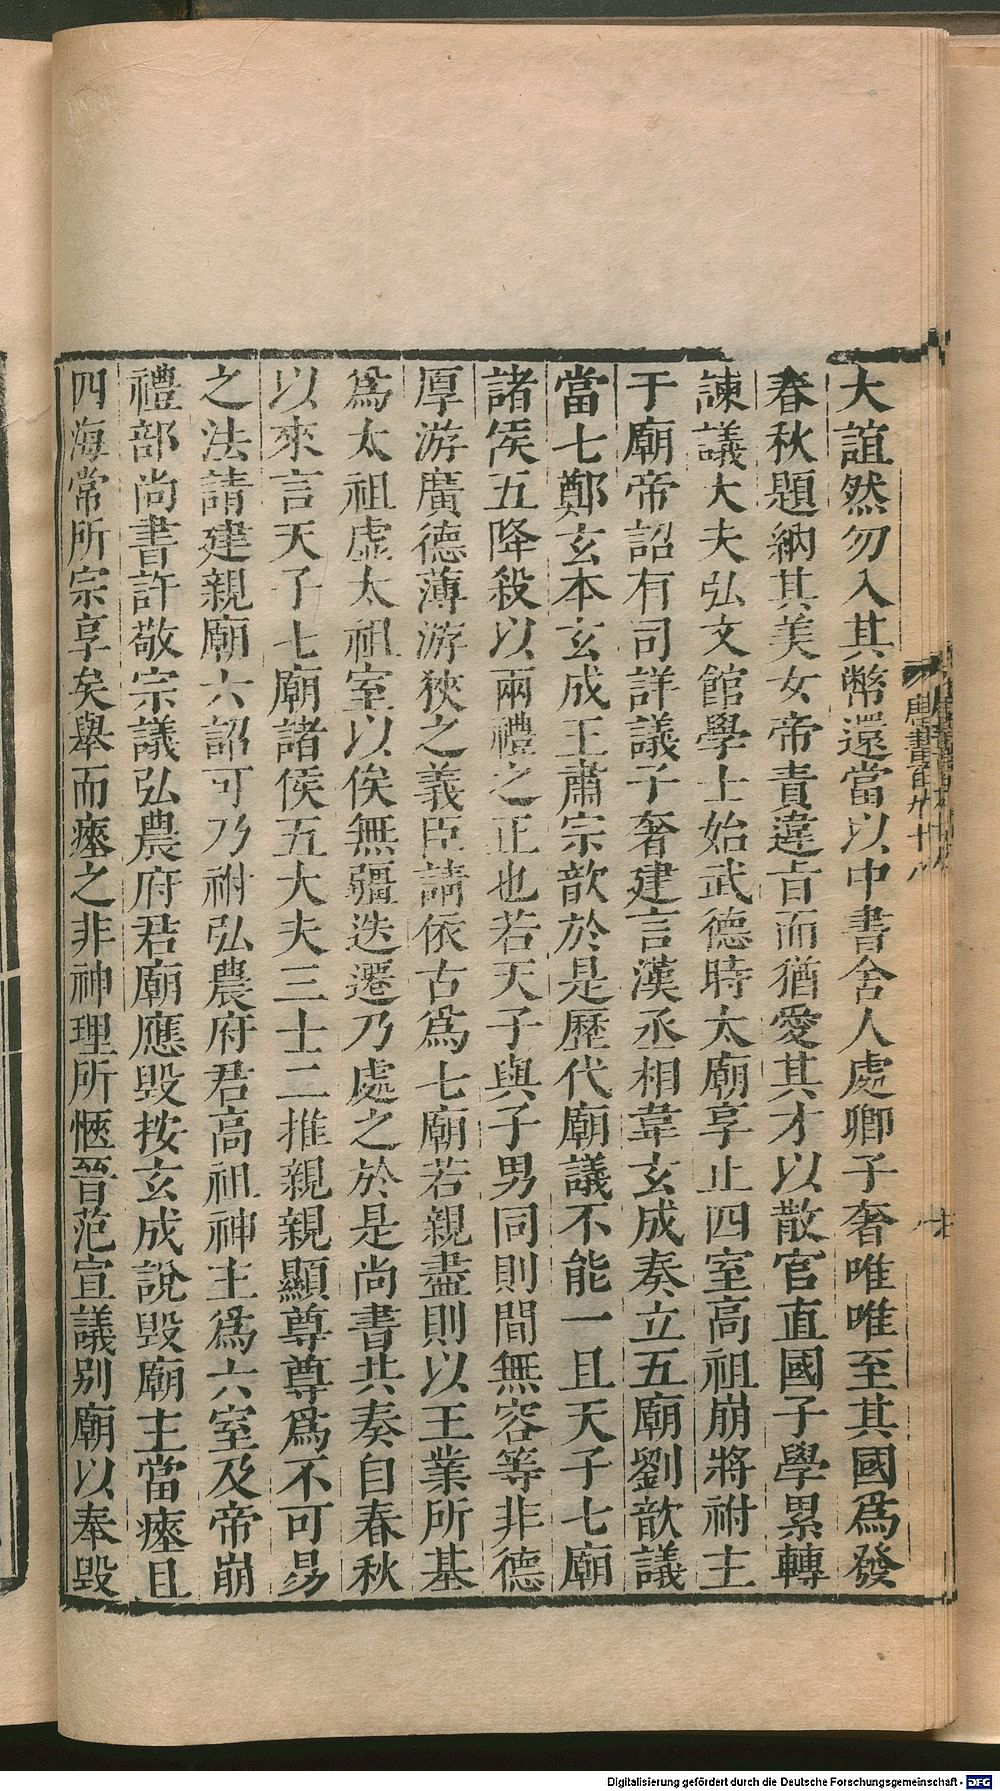 大誼然勿入其幣還當以中書舍人處卿子奢唯唯至其國爲發
春秋題納其美女帝責違旨而猶愛其才以散官直國子學累轉
諫議大夫弘文館學士始武德時太廟享止四室高祖崩將祔主
于廟帝詔有司詳議子奢建言漢丞相韋玄成奏立五廟劉歆議
當七鄭玄本玄成王肅宗歆於是歷代廟議不能一且天子七廟
諸侯五降殺以兩禮之正也若天子與子男同則間無容等非德
厚游廣德薄游狹之義臣請依古爲七廟若親盡則以王業所基
爲太祖虛太祖室以俟無疆迭遷乃處之於是尚書共奏自春秋
以來言天子七廟諸侯五大夫三士二推親親顯尊尊爲不可易
之法請建親廟六詔可乃祔弘農府君高祖神主爲六室及帝崩
禮部尚書許敬宗議弘農府君廟應毀按玄成說毀廟主當瘞且
四海常所宗享矣舉而瘞之非神理所愜晉范宣議別廟以奉毀
唐書百九十八
Digitalisierung gefördert durch die Deutsche Forschungsgemeinschaft - DFG